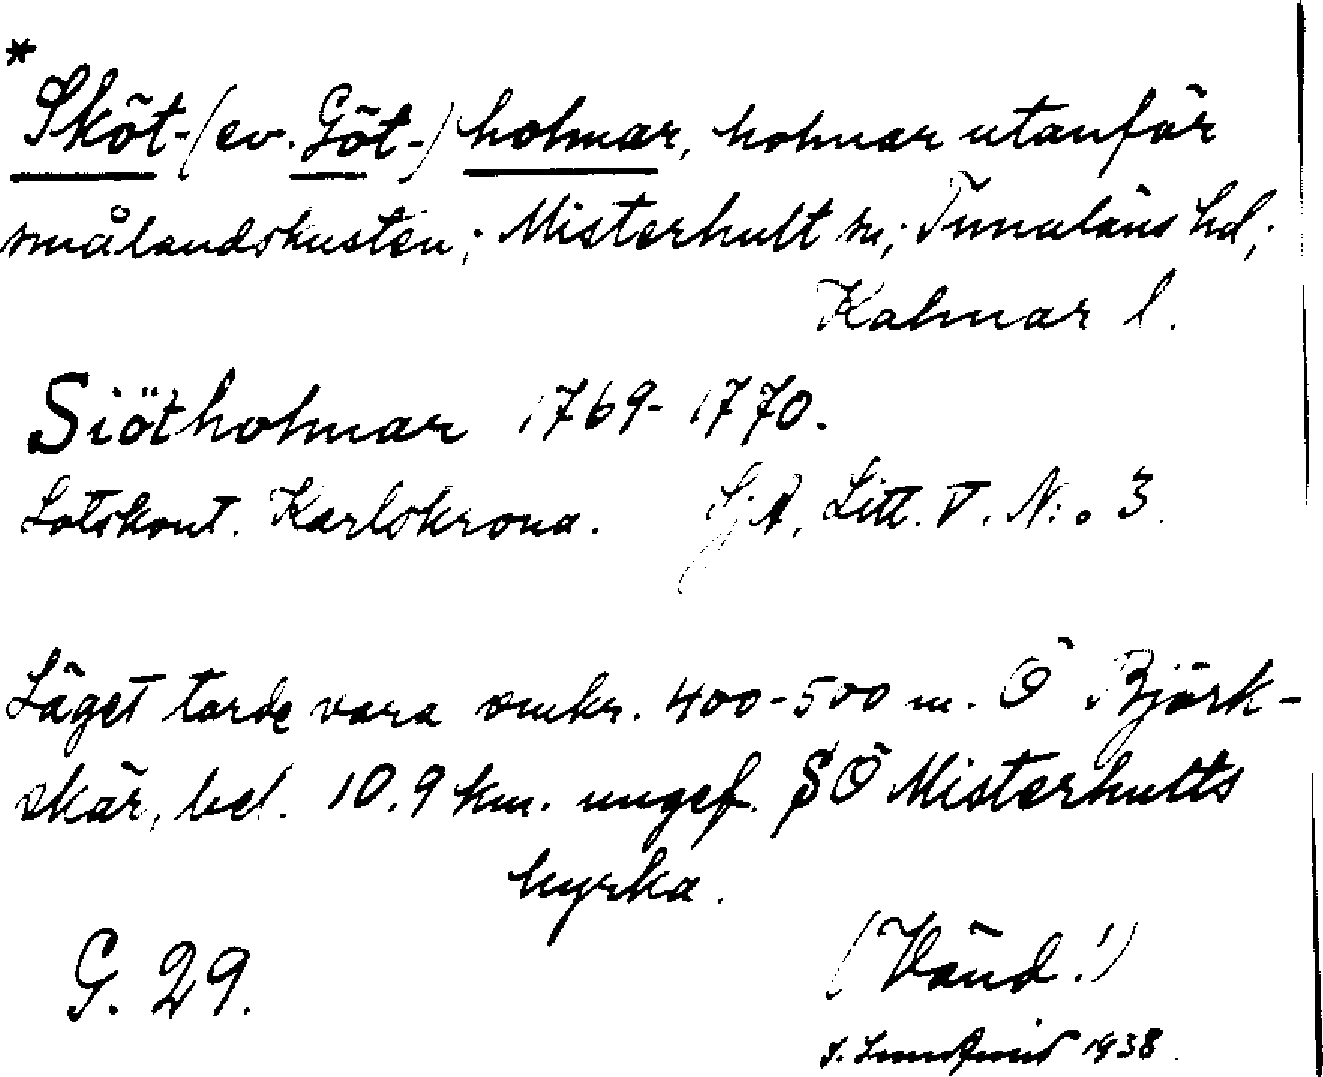 *
Sköt-(ev. Göt-) holmar, holmar utanför
smålandskusten; Misterhult sn; Tunaläns hd;
Kalmar l.
Siötholmar 1769-1770.
Lotskont. Karlskrona. SjA, Litt. V. N:o 3.
Läget torde vara omkr. 400-500 m. Ö Björk-
skär, bel. 10.9 km. ungef. SÖ Misterhults
kyrka.
G. 29.
(Vänd!)
1938